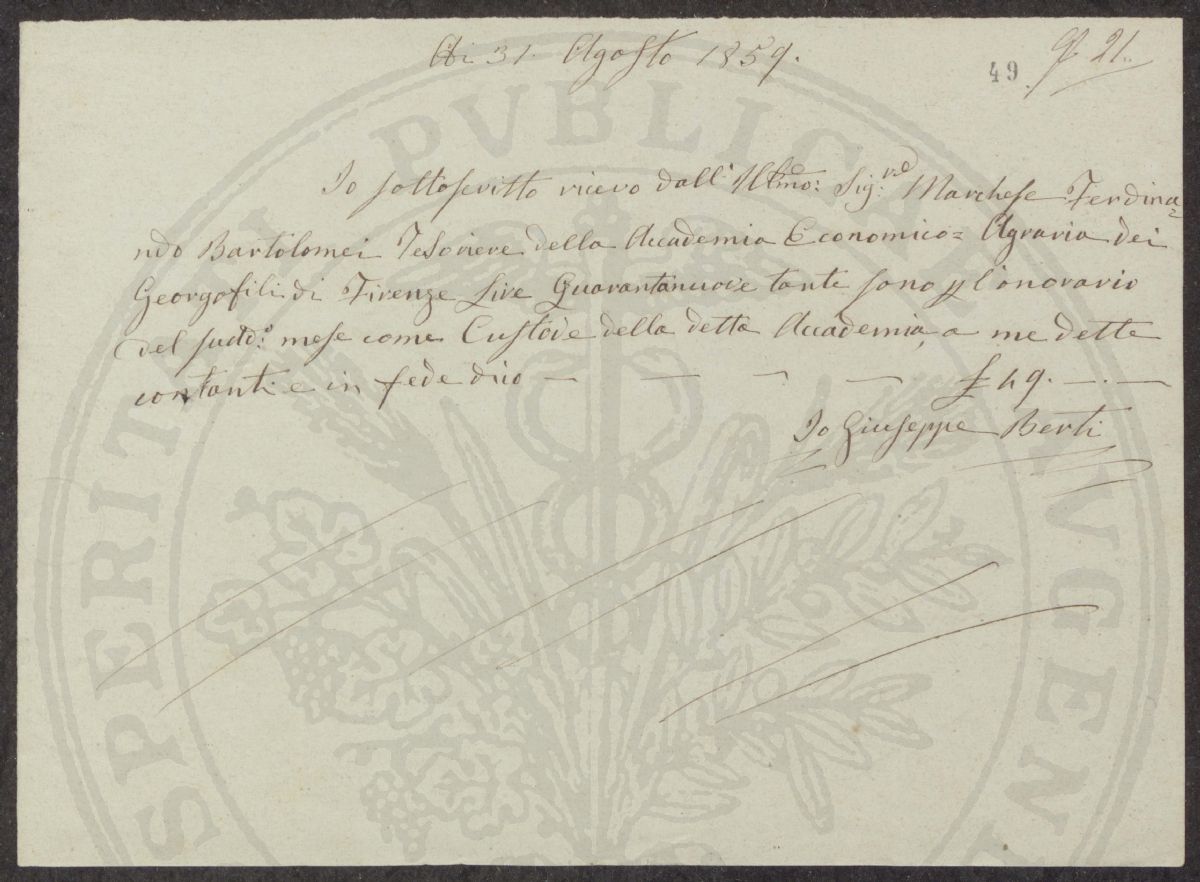 Ai 31 Agosto 1859.
49
21.
Io sottoscritto ricevo dall' Illmo: Sig:re Marchese Ferdina=
ndo Bartolomei Tesoriere della Accademia Economico= Agraria dei
Georgofili di Firenze Lire Quarantanove tante sono p l'onorario
del sudd:o mese come Custode della detta Accademia, a me dette
contanti e in fede dico — — — — £ 49. — . —
Io Giuseppe Berti
PROSPERITATI PVBLICAE AVGENDAE